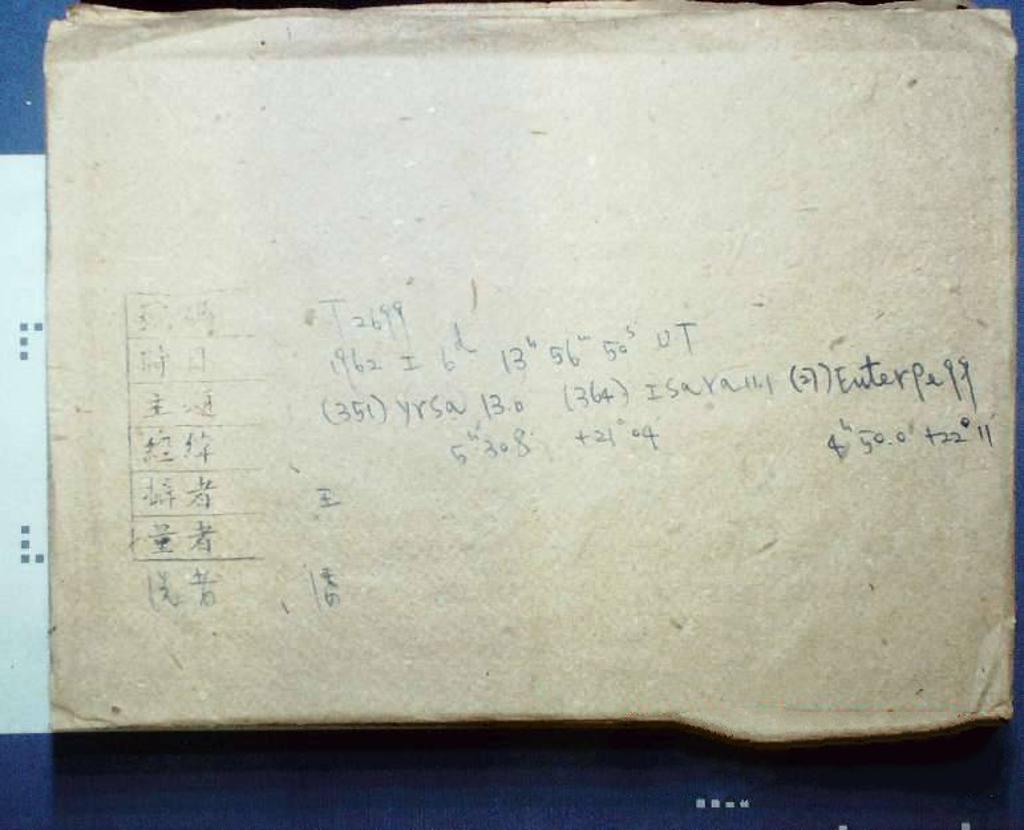 號碼 T2699
時日 1962 I 6d 13h 56m 50s UT
主題 (351) Yrsa 13.0 (364) Isara 11.1 (27) Euterpe 99
經緯 5h 30.8 +21°04 4h 50.0 +22°11
攝者 王
量者
洗者 潘